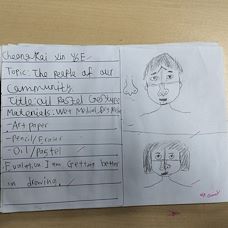 Cheong Kai Xin Y5E
Topic: The people of our
Community.
Title: Oil Pastel
Materials: Wet Media,
- Art paper
- Pencil/Eraser
- Oil/pastel
I am Getting better
in drawing.